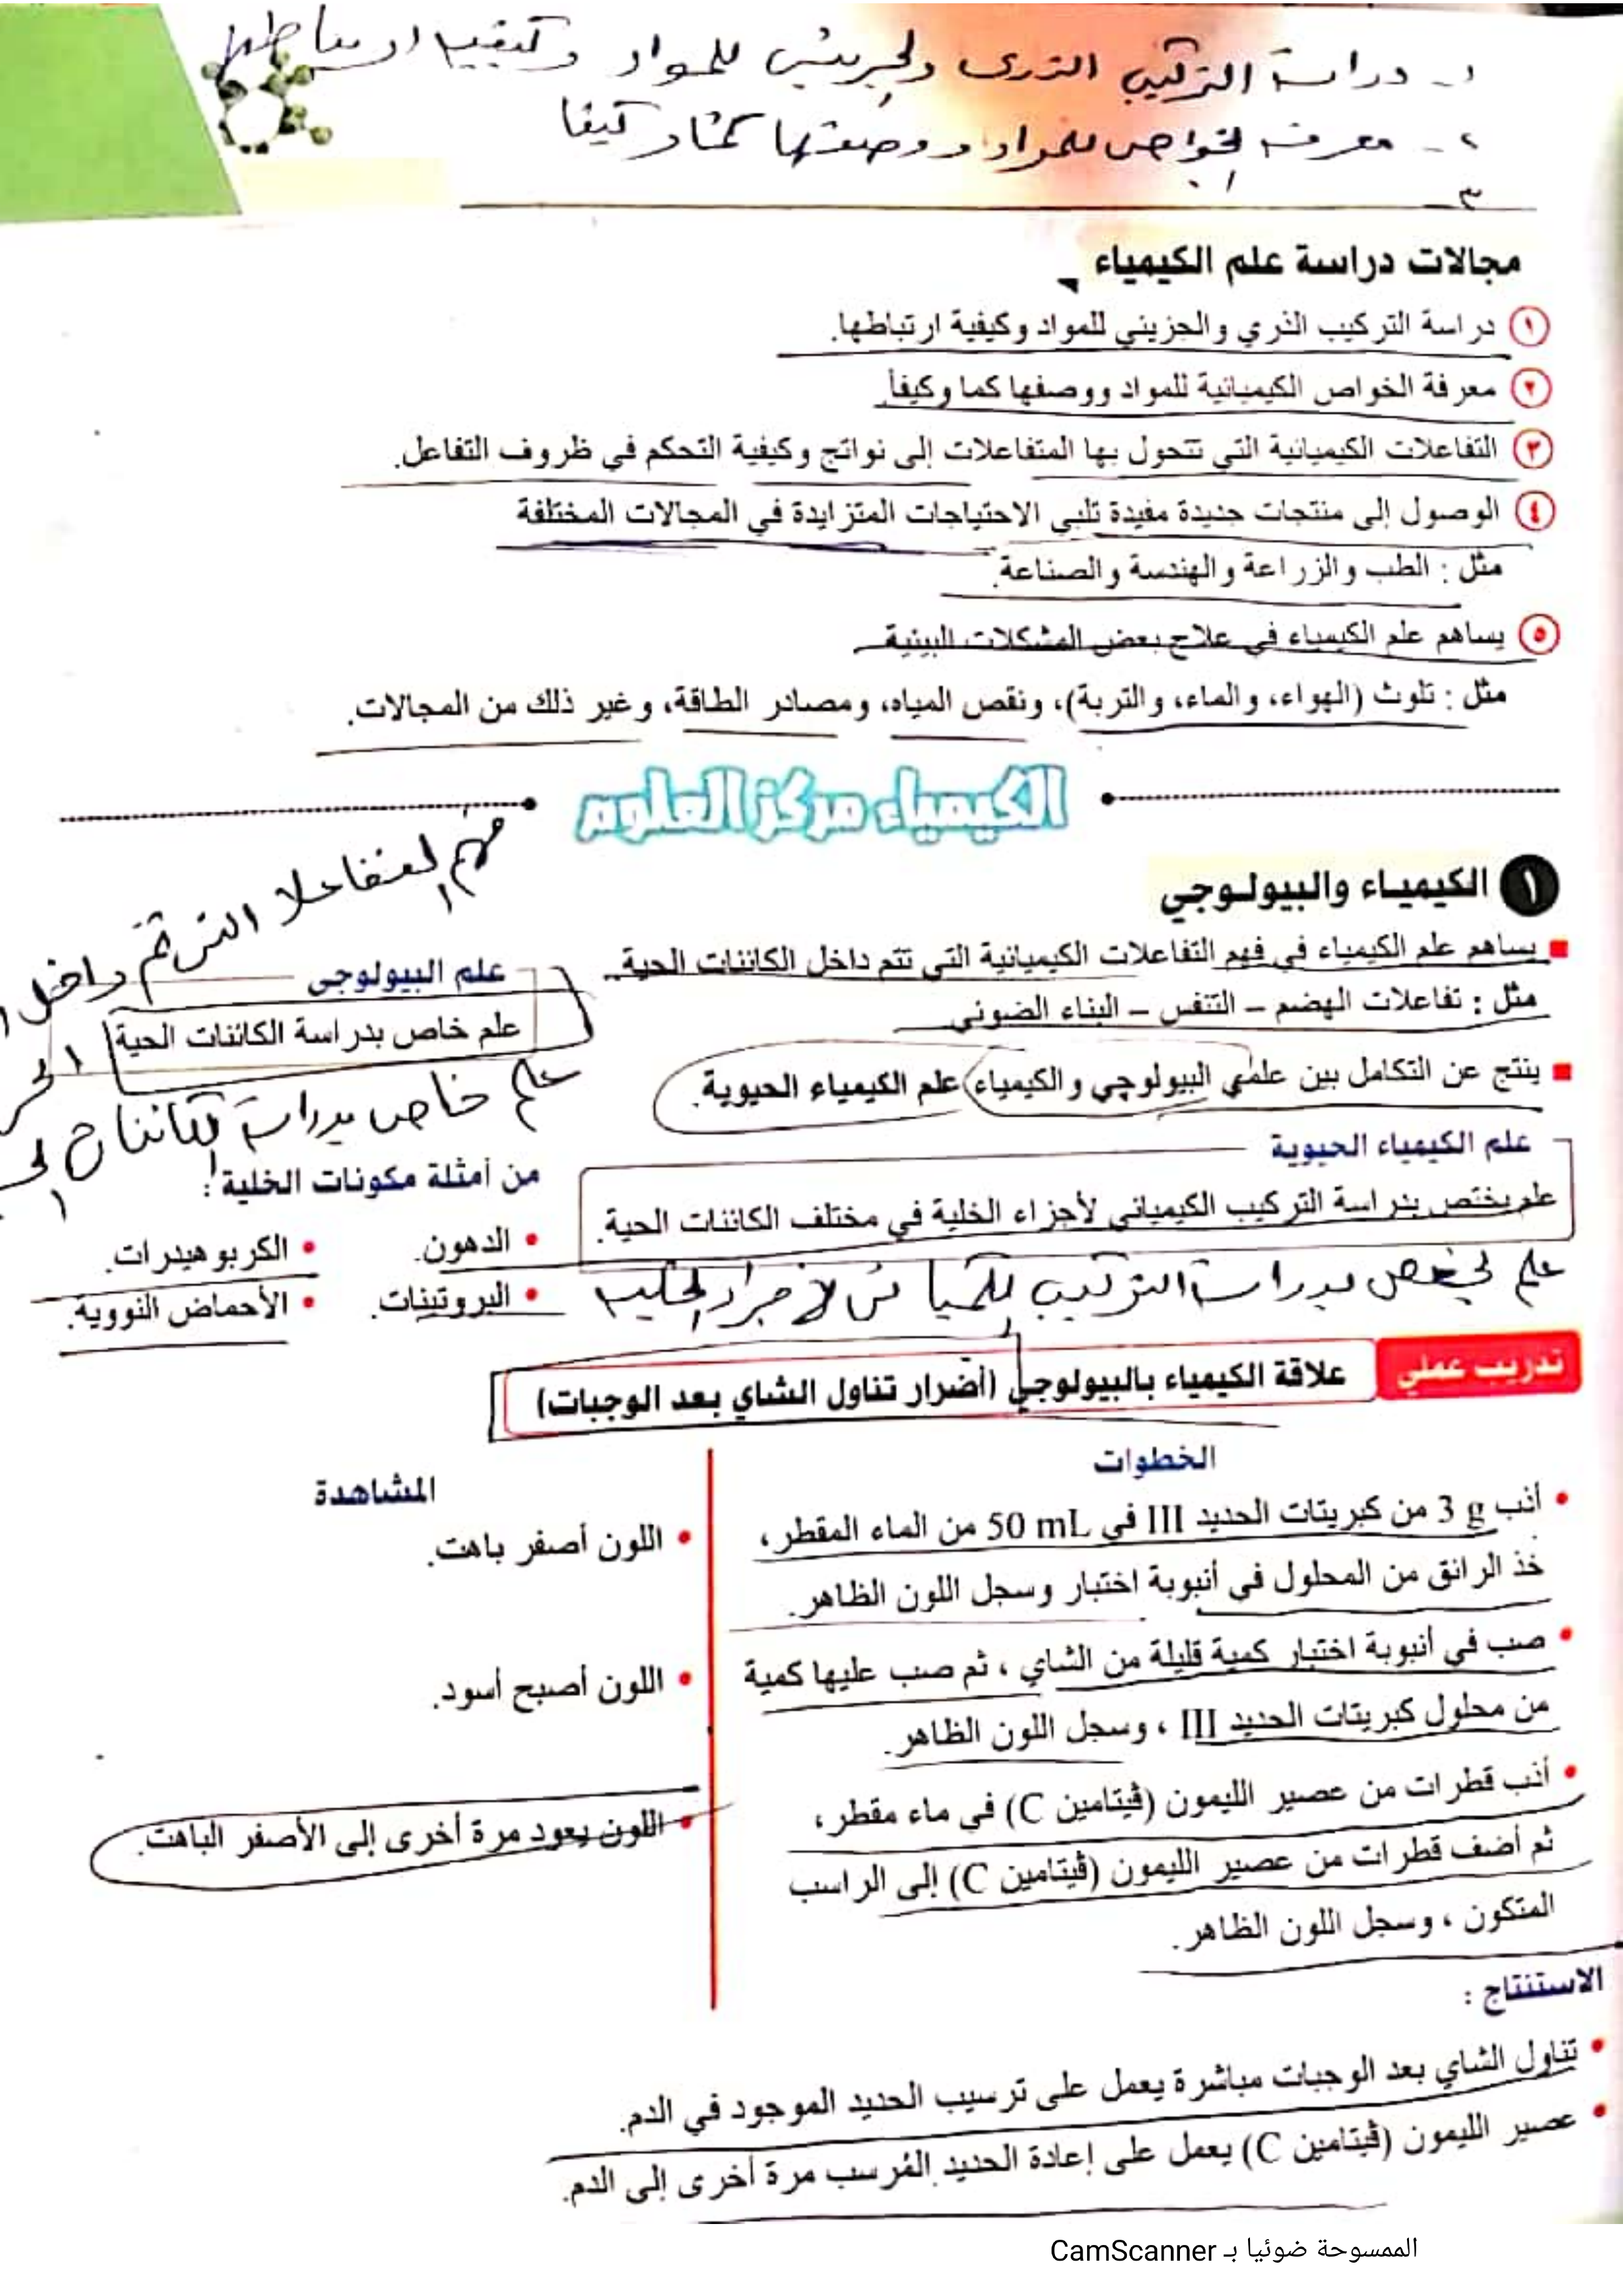 ١- دراسة التركيب الذري والجزيئي للمواد وكيفية ارتباطها
٢- معرفة الخواص للمواد ووصفها كما وكيفا
٣-
مجالات دراسة علم الكيمياء
١ دراسة التركيب الذري والجزيئي للمواد وكيفية ارتباطها.
٢ معرفة الخواص الكيميائية للمواد ووصفها كما وكيفاً.
٣ التفاعلات الكيميائية التي تتحول بها المتفاعلات إلى نواتج وكيفية التحكم في ظروف التفاعل.
٤ الوصول إلى منتجات جديدة مفيدة تلبي الاحتياجات المتزايدة في المجالات المختلفة
مثل : الطب والزراعة والهندسة والصناعة.
٥ يساهم علم الكيمياء في علاج بعض المشكلات البيئية
مثل : تلوث (الهواء، والماء، والتربة)، ونقص المياه، ومصادر الطاقة، وغير ذلك من المجالات.
الكيمياء مركز العلوم
١ الكيمياء والبيولوجي
يساهم علم الكيمياء في فهم التفاعلات الكيميائية التي تتم داخل الكائنات الحية
مثل : تفاعلات الهضم – التنفس – البناء الضوئي
ينتج عن التكامل بين علمي البيولوچي والكيمياء علم الكيمياء الحيوية.
فهم التفاعلا التي تتم داخل
علم البيولوجى
علم خاص بدراسة الكائنات الحية
علم خاص بدراسة الكائنات
علم الكيمياء الحيوية
علم يختص بدراسة التركيب الكيميائي لأجزاء الخلية في مختلف الكائنات الحية.
علم يختص بدراسة التركيب الكيميائي لأجزاء الخلية
من أمثلة مكونات الخلية :
• الدهون. • الكربوهيدرات.
• البروتينات. • الأحماض النووية.
تدريب عملي علاقة الكيمياء بالبيولوجي (أضرار تناول الشاي بعد الوجبات)
الخطوات
• أذب 3 g من كبريتات الحديد III في 50 mL من الماء المقطر،
خذ الرائق من المحلول في أنبوبة اختبار وسجل اللون الظاهر.
• صب في أنبوبة اختبار كمية قليلة من الشاي ، ثم صب عليها كمية
من محلول كبريتات الحديد III ، وسجل اللون الظاهر.
• أذب قطرات من عصير الليمون (ڤيتامين C) في ماء مقطر،
ثم أضف قطرات من عصير الليمون (ڤيتامين C) إلى الراسب
المتكون ، وسجل اللون الظاهر.
المشاهدة
• اللون أصفر باهت.
• اللون أصبح أسود.
• اللون يعود مرة أخرى إلى الأصفر الباهت.
الاستنتاج :
• تناول الشاي بعد الوجبات مباشرة يعمل على ترسيب الحديد الموجود في الدم.
• عصير الليمون (ڤيتامين C) يعمل على إعادة الحديد المُرسب مرة أخرى إلى الدم.
الممسوحة ضوئيا بـ CamScanner